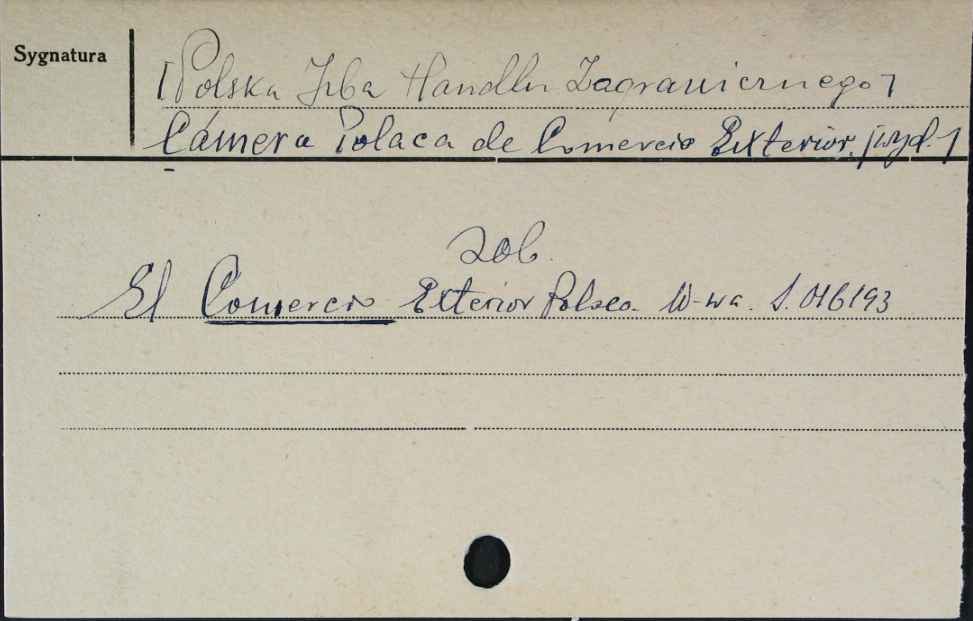 Sygnatura
[Polska Izba Handlu Zagranicznego]
Cámera Polaca de Comercio Exterior. [wyd.]
zob.
El Comercio Exterior Polaco. W-wa. S. 016193